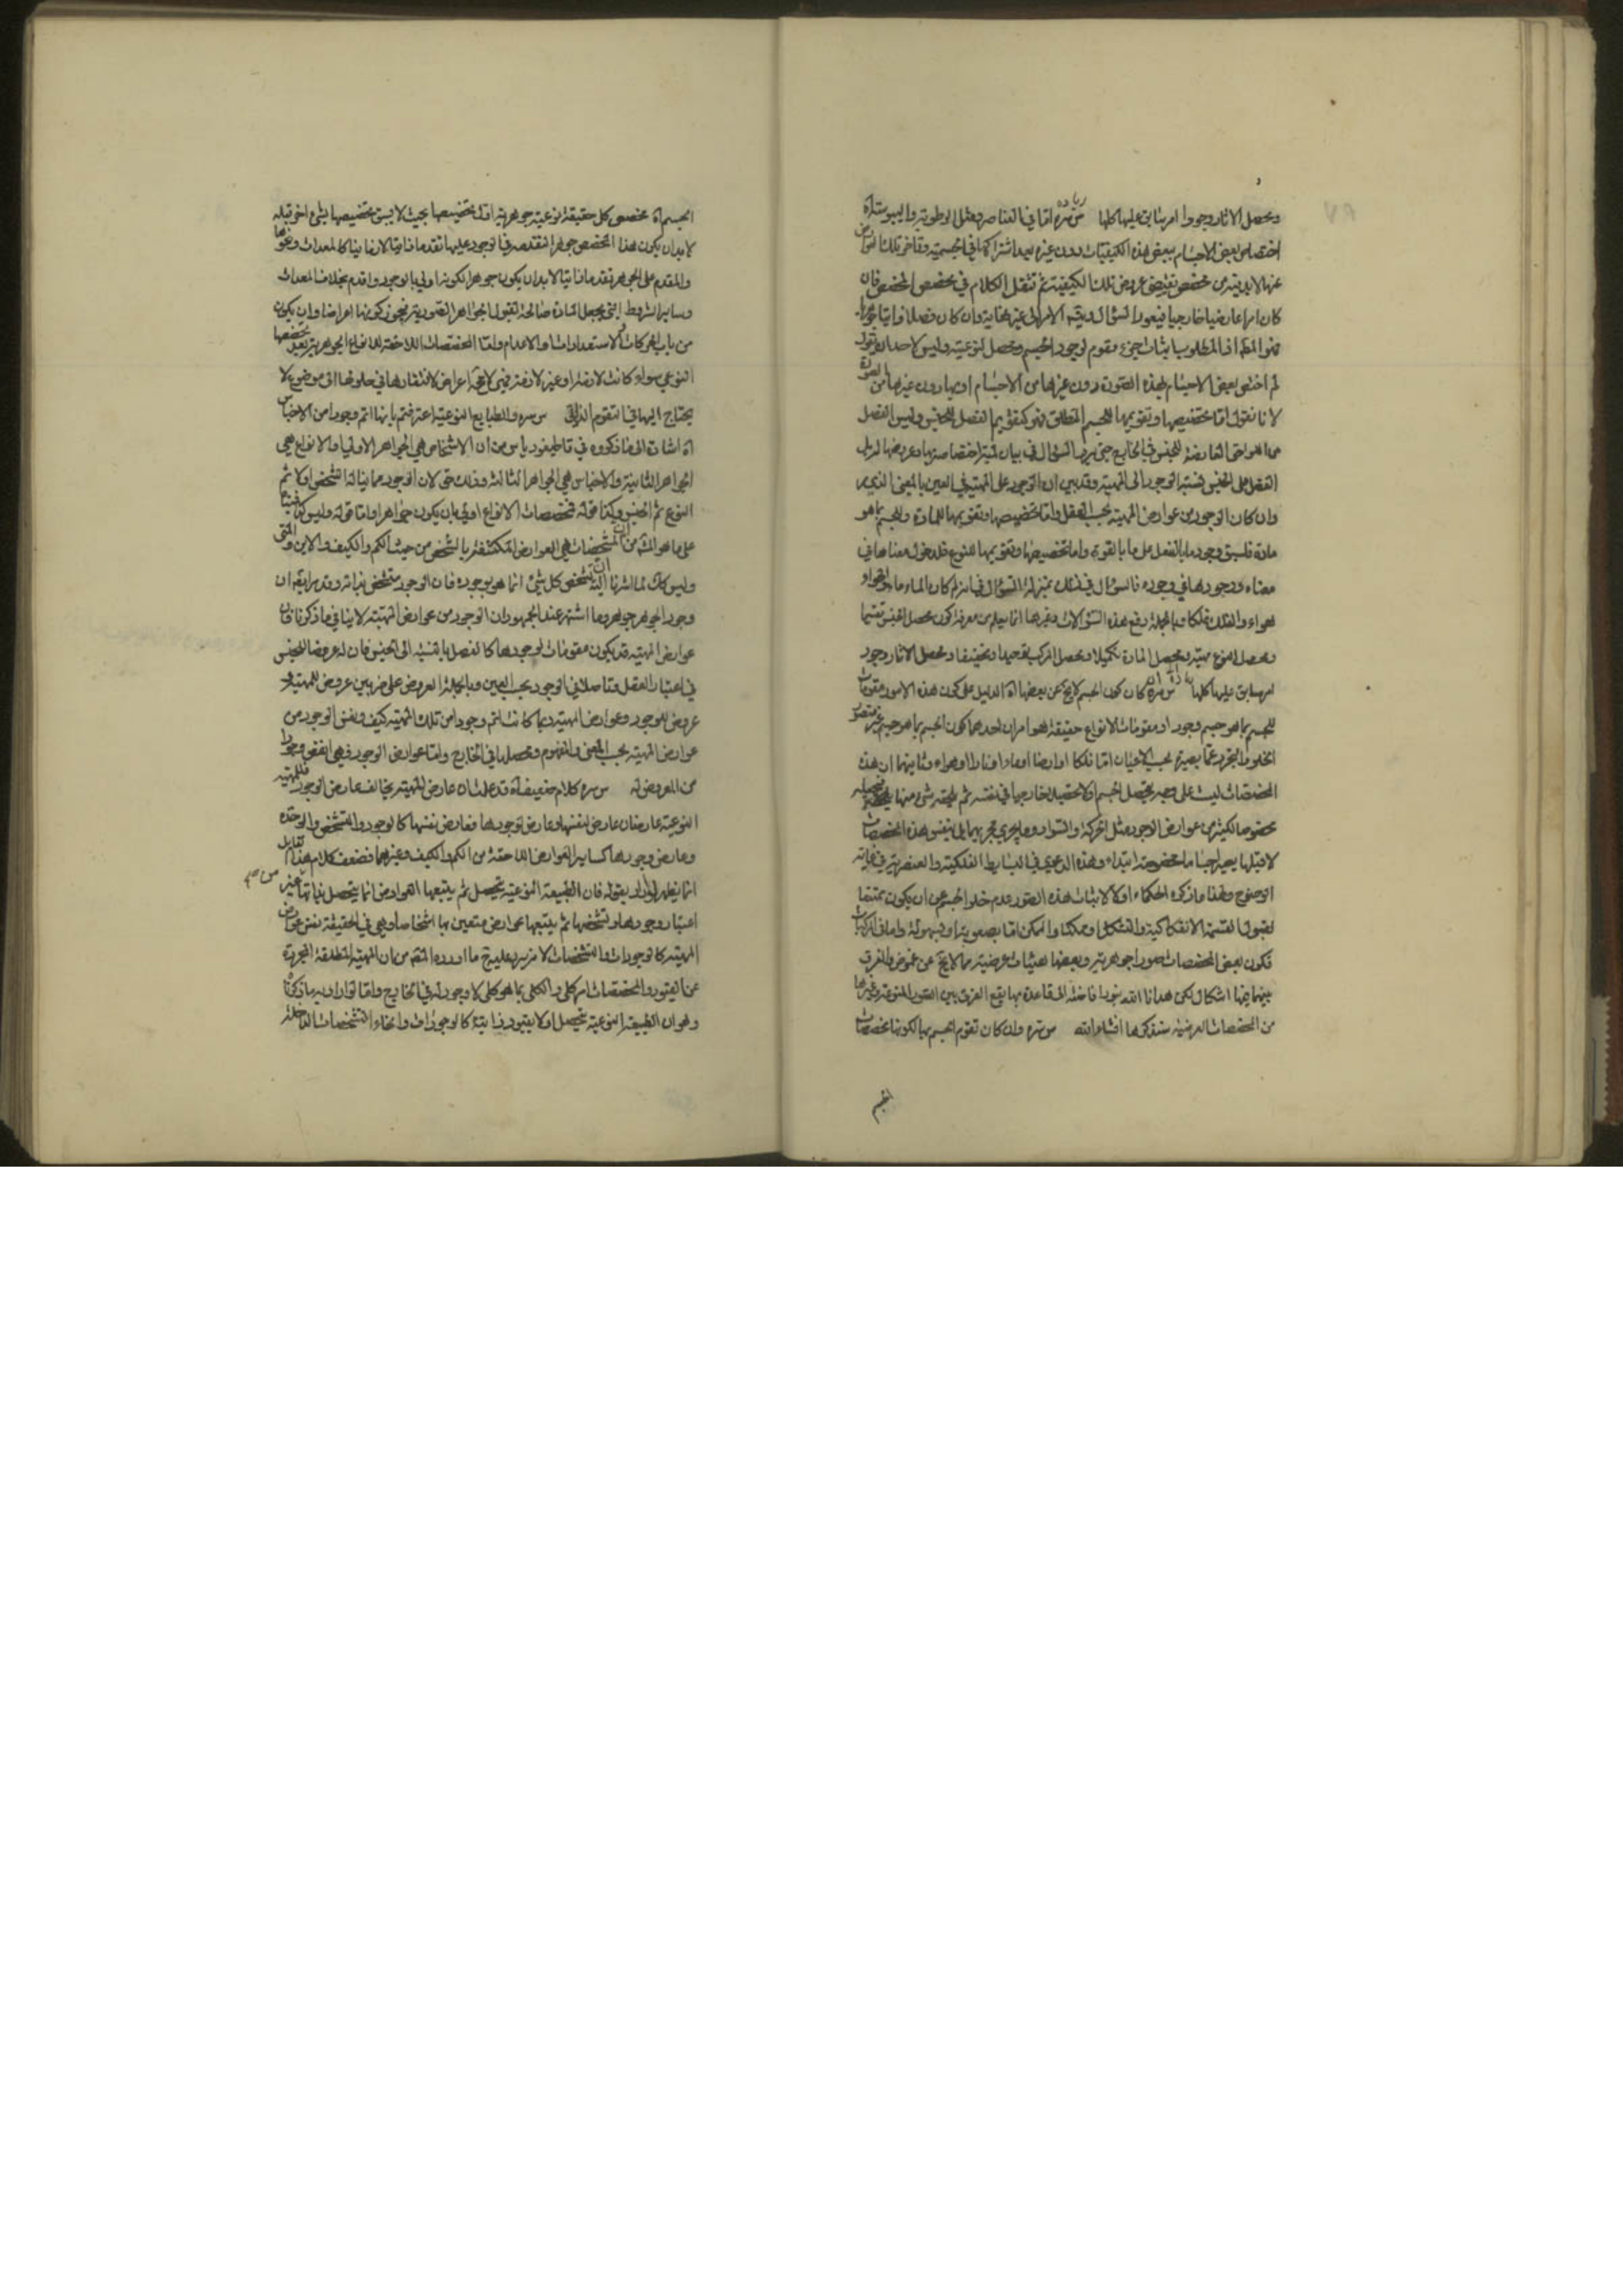 ومحصل الآثار وجودا امر سابق عليها كلها س ره اما في العناصر فمثل الرطوبة واليبوسة آه
اختصاص بعض الاجسام ببعض هذه الكيفيات دون غيره بعد اشتراكها في الجسمية وتأخر تلك
عنها لابد فيه من مخصص يقتضي عروض تلك الكيفية ثم ننقل الكلام في مخصص المخصص فان
كان امرا عارضيا خارجيا فيعود السؤال ويتم الامر الى غير نهاية وان كان فصلا ذاتيا
فهو المط اذ المطلوب اثبات جزء مقوم لوجود الجسم ومحصل لنوعيته وليس لاحد ان يقول
لم اختص بعض الاجسام بهذه الصورة دون غيرها من الاجسام او بها دون غيرها من الصورة
لانا نقول اما تخصيصها وتقويمها للجسم المطلق فهو كتقويم الفصل للجنس وليس الفصل
من اللواحق العارضة للجنس في الخارج حتى يرد السؤال في بيان لمية اختصاصه بها وعروضها له بل
الفصل على الجنس كنسبة الوجود الى المهية وقد بين ان الوجود على المهية في العين بالمعنى الذي مر
وان كان الوجود من عوارض المهية بحسب العقل واما تخصيصها وتقويمها للمادة وللجسم بما هو
مادة فلسبق وجود ما بالفعل على ما بالقوة واما تخصيصها وتقويمها للنوع فلدخول معناها في
معناه ووجودها في وجوده فالسؤال في ذلك بمنزلة السؤال في انه لم كان الماء ماء والهواء
هواء والفلك فلكا وبالجملة دفع هذه السؤالات وغيرها انما يعلم من معرفة كون محصل الجنس تقسيما
ومحصل النوع مهية ومحصل المادة تكميلا ومحصل المركب توحيدا ومحصل الآثار وجود
امر سابق عليها كلها س ره كان كون الجسم لا يخ عن بعضها آه الدليل على كون هذه الامور مقومات
للجسم بما هو جسم وجودا ومقومات الانواع حقيقة هو امران احدهما كون الجسم بما هو جسم غير متصور
الخلو والتجرد عما يصير به بحسب الاعيان اما فلكا او ارضا او ماء او نارا او هواء وثانيهما ان هذه
المخصصات ليست على وجه يتحصل الجسم اولا تحصيلا خارجيا في نفسه ثم يلحقه شيء منها
مخصوصا لكثير من عوارض الوجود مثل الحركة والسواد وما يجري مجريهما بل بنفس هذه المخصصات
لا قبلها يصير جسما ما مخصوصا ابتداء وهذه الدعوى في البسايط الفلكية والعنصرية في غاية
الوضوح ولهذا ما ذكره الحكماء اولا لاثبات هذه الصور عدم خلو الجسم عن ان يكون ممتنعا
لقبول القسمة الانفكاكية والتشكل وممكنا والممكن اما بصعوبة او بسهولة واما في المركبات
فكون بعض المخصصات صورا جوهرية وبعضها هيئات عرضية مما لا يخ عن غموض والفرق
بينهما فيها اشكال لكن هدانا الله بنوره افاضة الى قاعدة بها يقع الفرق بين الصور المنوعة وغيرها
من المخصصات العرضية سنذكرها انشاء الله س ره وان كان تقوم الجسم بها لكونها مخصصات
الجسم
الجسم آه مخصص كل حقيقة نوعية جوهرية اول تخصيصها بحيث لا يسبق تخصيصها بشيء اخر قبله
لابد ان يكون هذا المخصص جوهرا لتقدمه في الوجود عليها تقدما ذاتيا لا زمانيا كالمعدات ونحوها
والمقدم على الجوهر تقدما ذاتيا لابد ان يكون جوهرا لكونه اولى بالوجود واقدم بخلاف المعدات
وساير الشروط التي يجعل المادة صالحة لقبول الجواهر الصورية فيجوز كونها اعراضا وان يكون
من باب الحركات والاستعدادات والاعدام واما المخصصات اللاحقة للانواع الجوهرية بعد تخصصها
النوعي سواء كانت لازمة او غير لازمة فهي لا محة اعراض لافتقارها في حلولها الى موضوع لا
يحتاج اليها في التقوم الذاتي س ره والطبايع النوعية اعترفتم بانها اتم وجودا من الاجناس
آه اشارة الى ما ذكروه في قاطيغورياس من ان الاشخاص هي الجواهر الاولى والانواع هي
الجواهر الثانية والاجناس هي الجواهر الثالثة وذلك حق لان الوجود مما يناله الشخص اولا ثم
النوع ثم الجنس وكذا قوله فمخصصات الانواع اولى بان يكون جواهر واما قوله وليس كذا
على ما هو المشهور من ان المشخصات هي العوارض المكتنفة بالشخص من حيث الكم والكيف والاين والمتى
وليس كك لما اشرنا اليه ان تشخص كل شيء انما هو بوجوده فان الوجود متشخص بذاته وقد مر ان
وجود الجوهر جوهر وما اشتهر عند الجمهور ان الوجود من عوارض المهية لا ينافي ما ذكرنا فان
عوارض المهية قد يكون مقومات لوجودها كالفصل بالنسبة الى الجنس فان له عروضا للجنس
في اعتبار العقل وتاصلا في الوجود بحسب العين وبالجملة العروض على ضربين عروض للمهية و
عروض للوجود وعوارض المهية ربما كانت اتم وجودا من تلك المهية كيف ونفس الوجود من
عوارض المهية بحسب المعنى والمفهوم وتحصلها في الخارج واما عوارض الوجود فهي انقص وجودا
من المعروض له س ره كلام ضعيف آه قد علمت ان عارض المهية يخالف عارض الوجود فللمهية
النوعية عارضان عارض لنفسها وعارض لوجودها فعارض نفسها كالوجود والتشخص والوحدة
وعارض وجودها كساير العوارض اللاحقة من الكم والكيف وغيرهما فضعف كلام هذا القايل
انما يظهر لو اراد بقوله فان الطبيعة النوعية تحصل ثم يتبعها العوارض انما يتحصل بذاتها من غير
اعتبار وجودها وتشخصها ثم يتبعها عوارض متعين بها اشخاصا وهي في الحقيقة نفس عوارض
المهية كالوجودات والتشخصات لا مزيد عليه ما اورده من ان المهية المطلقة المجردة
عن القيود والمخصصات امر كلي والكلي بما هو كلي لا وجود له في الخارج واما لو اراد به ما ذكرنا
وهو ان الطبيعة النوعية تحصل اولا بقيود ذاتية كالوجودات وانحاء التشخصات الداخلة